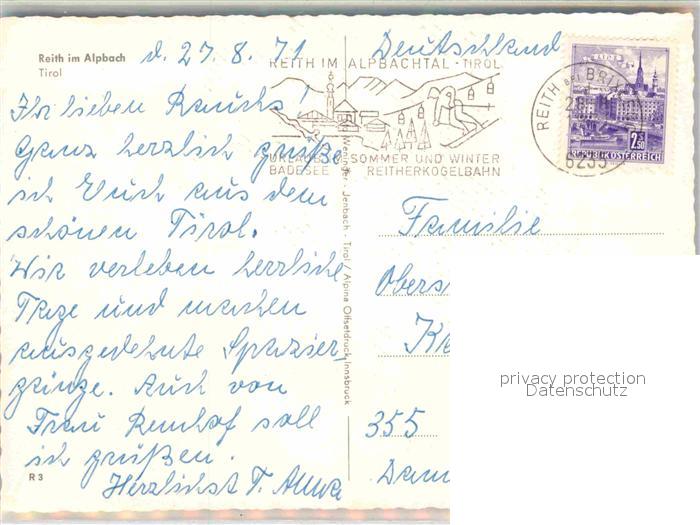 Reith im Alpbach
Tirol
d. 27. 8. 71
Deutschland
REITH IM ALPBACHTAL · TIROL
URLAUB SOMMER UND WINTER
BADESEE REITHERKOGELBAHN
REITH BEI BRI
6235
2.50
REPUBLIK ÖSTERREICH
Ihr lieben Rauschs!
Ganz herzlich grüße
ich Euch aus dem
schönen Tirol.
Wir verleben herrliche
Tage und machen
ausgedehnte Spazier-
gänge. Auch von
Frau Remhof soll
ich grüßen.
Herzlichst T. Anna
R 3
Jenbach - Tirol / Alpina Offsetdruck, Innsbruck
Familie
Obers
355
privacy protection
Datenschutz